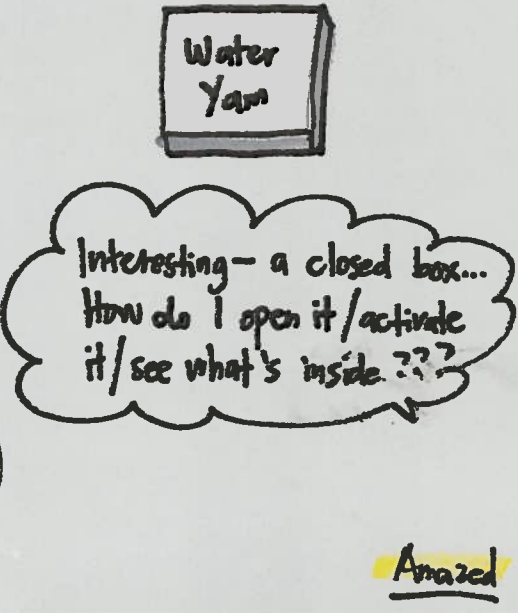 Water
Yam
Interesting - a closed box...
How do I open it/activate
it/see what's inside ???
Amazed